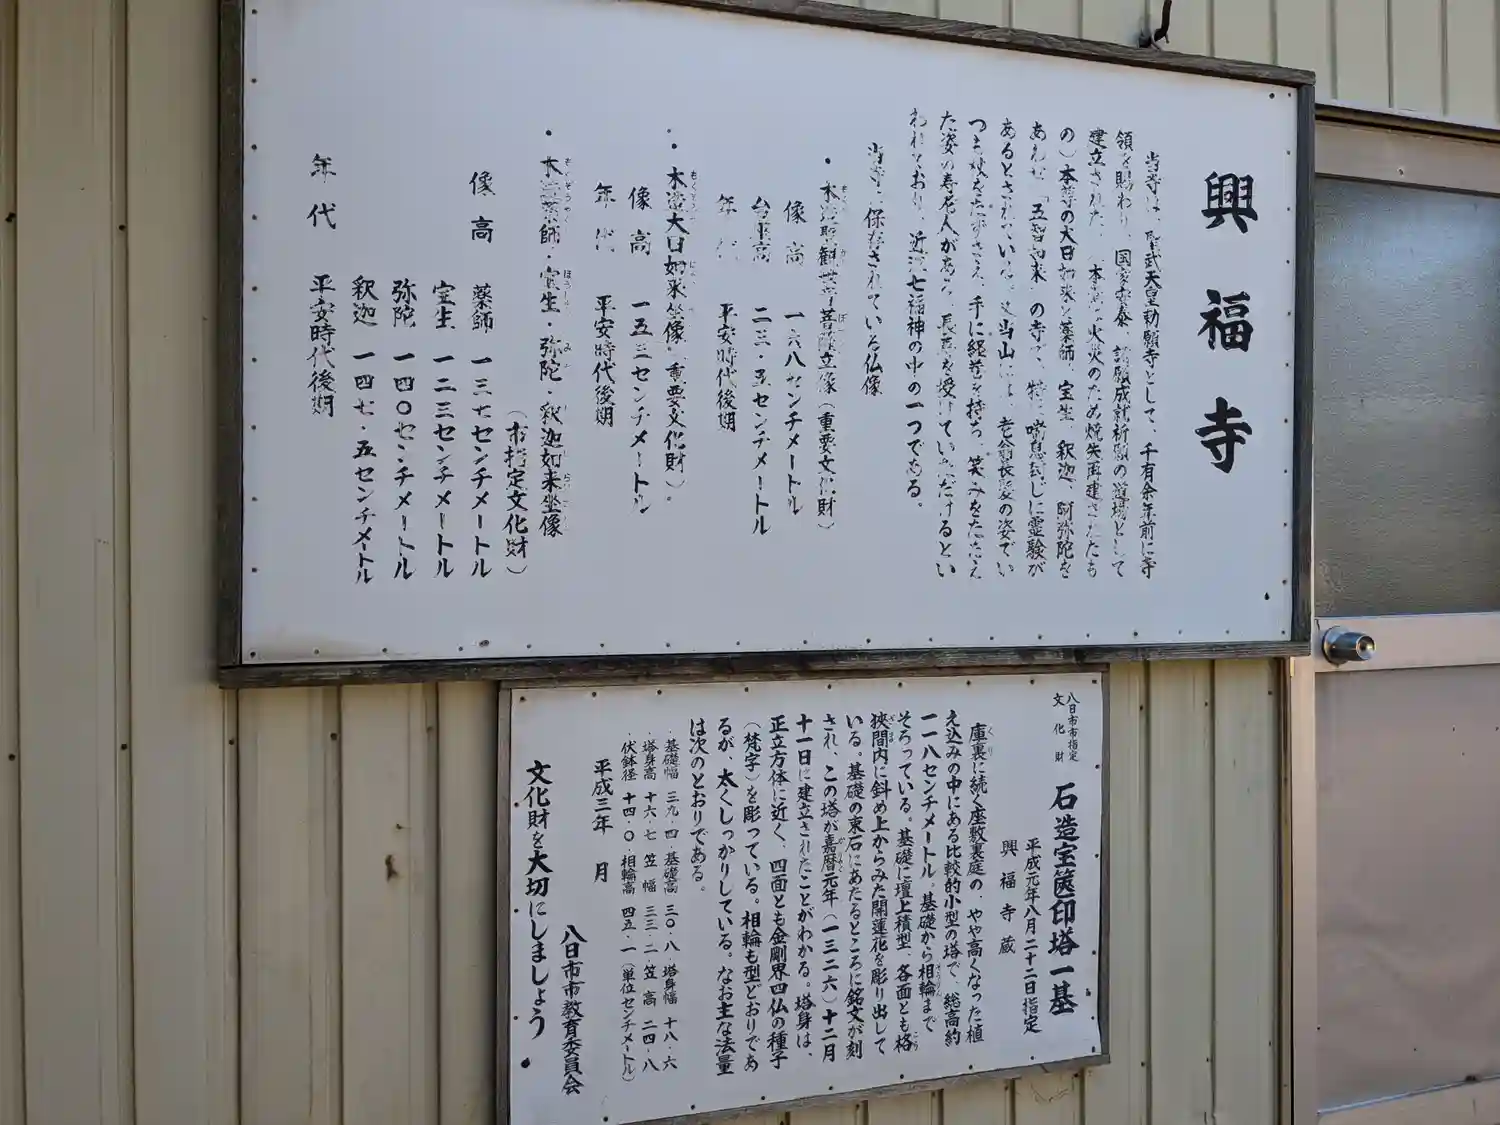 興福寺
当寺は、聖武天皇勅願寺として、千有余年前に寺
領を賜わり、国家安泰、諸願成就祈願の道場として
建立された。(本堂は火災のため焼失再建されたも
の)本尊の大日如来と薬師、宝生、釈迦、阿弥陀を
あわせ「五智如来」の寺で、特に喘息封じに霊験が
あるとされている。又当山には、老翁長髪の姿でい
つも杖をたずさえ、手に経巻を持ち、笑みをたたえ
た姿の寿老人があり、長寿を授けていただけるとい
われており、近江七福神の中の一つである。
当寺に保存されている仏像
・木造聖観世音菩薩立像(重要文化財)
像高 一六八センチメートル
台座高 二三・五センチメートル
年代 平安時代後期
・木造大日如来坐像(重要文化財)。
像高 一五三センチメートル
年代 平安時代後期
・木造薬師・宝生・弥陀・釈迦如来坐像
(市指定文化財)
像高 薬師 一三七センチメートル
宝生 一二三センチメートル
弥陀 一四〇センチメートル
釈迦 一四七・五センチメートル
年代 平安時代後期
八日市市指定
文化財
石造宝篋印塔一基
平成元年八月二十二日指定
興福寺蔵
庫裏に続く座敷裏庭の、やや高くなった植
え込みの中にある比較的小型の塔で、総高約
一一八センチメートル。基礎から相輪まで
そろっている。基礎に壇上積型、各面とも格
狭間内に斜め上からみた開蓮花を彫り出して
いる。基礎の束石にあたるところに銘文が刻
され、この塔が嘉暦元年(一三二六)十二月
十一日に建立されたことがわかる。塔身は、
正立方体に近く、四面とも金剛界四仏の種子
(梵字)を彫っている。相輪も型どおりであ
るが、太くしっかりしている。なお主な法量
は次のとおりである。
・基礎幅 三九・四・基礎高 三〇・八・塔身幅 十八・六
・塔身高 十六・七 笠幅 三三・二・笠高 二四・八
・伏鉢径 十四・〇・相輪高 四五・一(単位センチメートル)
平成三年 月
八日市市教育委員会
文化財を大切にしましょう